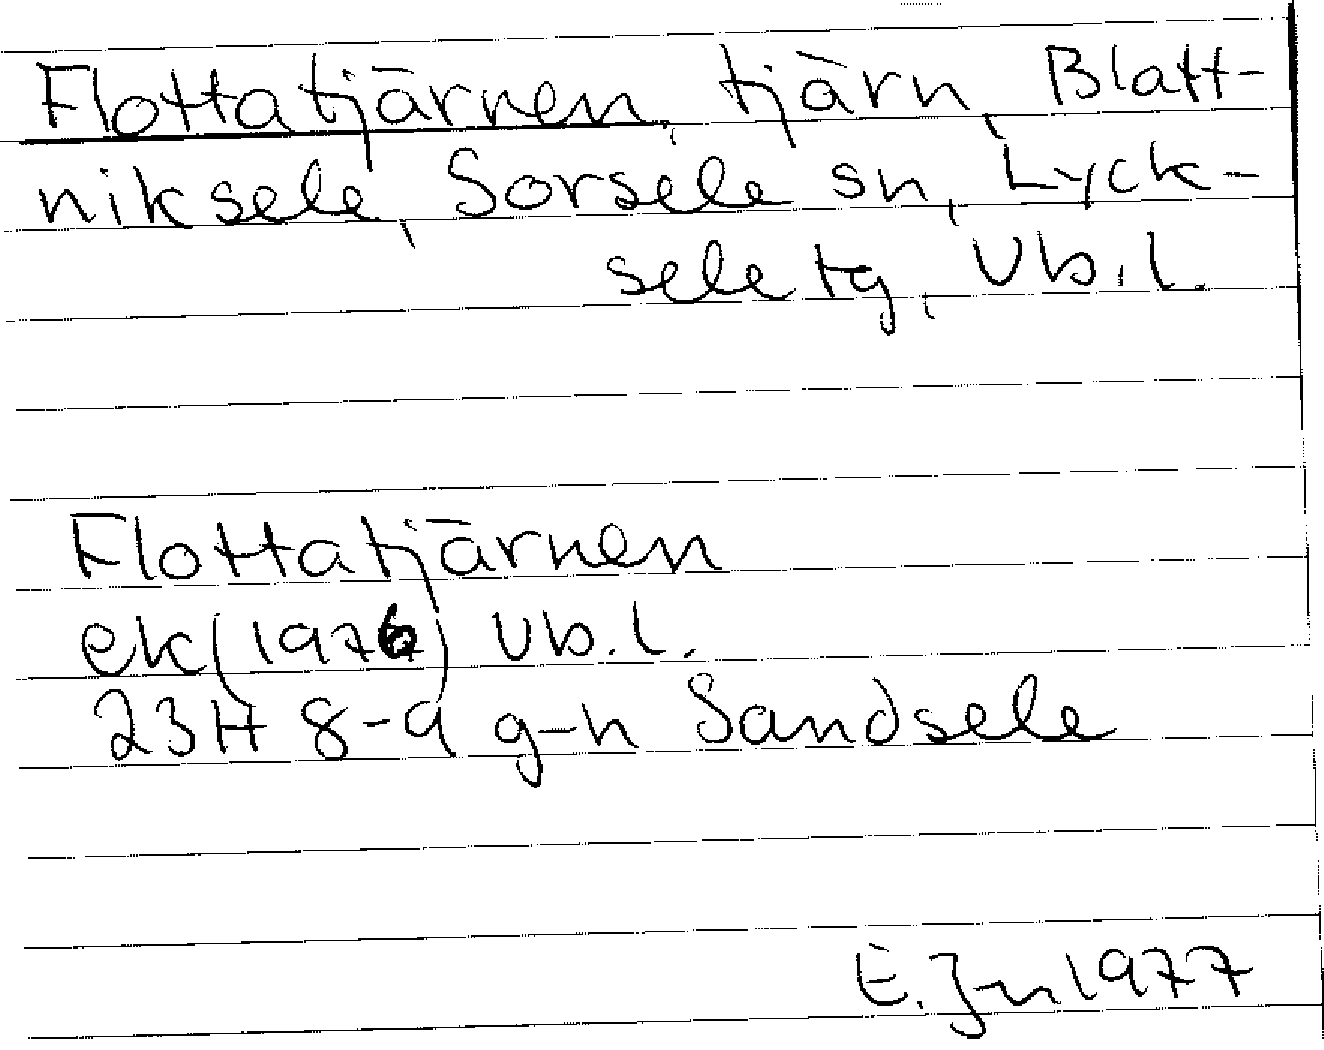 Flottatjärnen, tjärn, Blatt-
niksele, Sorsele sn, Lyck-
sele tg, Vb.l.
Flottatjärnen
ek (1976) Vb.l.
23H 8-9 g-h Sandsele
E. Jn 1977